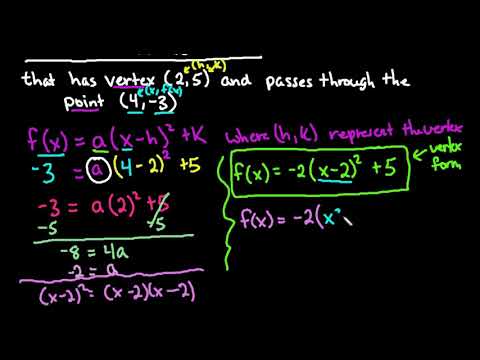 that has vertex (2,5) and passes through the
(h,k)
point (4,-3)
(x,f(x))
f(x) = a(x-h)²+K where (h,k) represent the vertex
-3 = a(4-2)²+5
-3 = a(2)²+5
-5 -5
-8 = 4a
-2 = a
(x-2)² = (x-2)(x-2)
f(x) = -2(x-2)² +5
vertex
form
f(x) = -2(x²